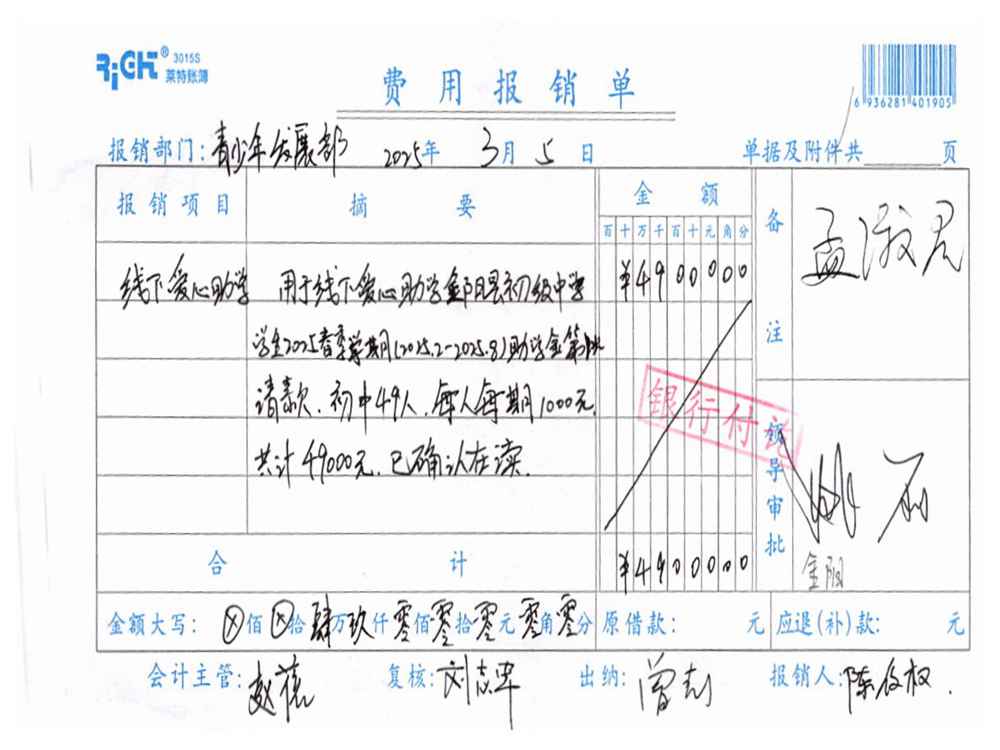 RiGHT® 3015S
莱特账簿
费用报销单
6 936281 401905
报销部门：青少年发展部 2025年 3月 5日 单据及附件共 页
报销项目 摘要 金额 备注
百十万千百十元角分
孟淑君
线下爱心助学 用于线下爱心助学金阳县初级中学 ¥4900000
学生2025春季学期(2025.2-2025.8)助学金第 批
请款.初中49人.每人每期1000元.
共计49000元.已确认在读.
银行付讫
领导审批
金阳
合计 ¥4900000
金额大写：ⓧ佰ⓧ拾肆万玖仟零佰零拾零元零角零分 原借款： 元 应退(补)款： 元
会计主管： 复核：刘志军 出纳：曾 报销人：陈 权